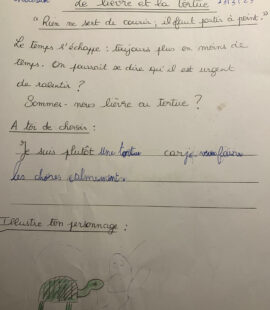 de lièvre et la tortue
"Rien ne sert de courir; il faut partir à point."
Le temps s'échappe : toujours plus en moins de
temps. On pourrait se dire qu'il est urgent
de ralentir ?
Sommes-nous lièvre ou tortue ?
A toi de choisir :
Je suis plutôt une tortue car je faire
les choses calmement.
Illustre ton personnage :